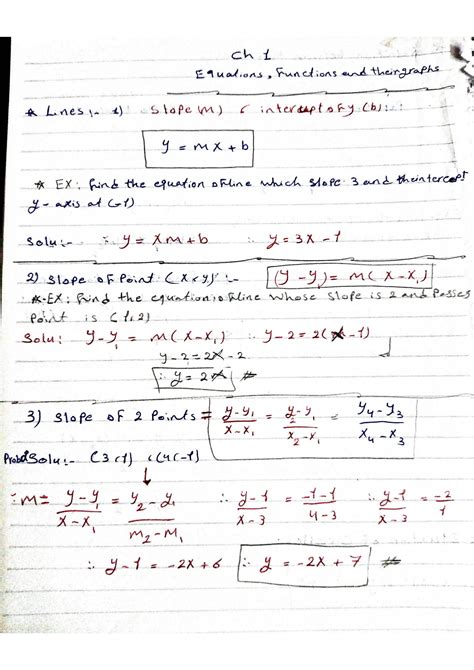 Ch 1
Equations, Functions and their graphs
* Lines:- 1) Slope (m) , intercept of y (b):
y = mx + b
* EX: find the equation of line which slope 3 and the intercept
y-axis at (-1)
Solu:- ∵ y = xm + b ∴ y = 3x - 1
2) Slope of Point (x,y):- (y - y₁) = m(x - x₁)
*EX: find the equation of line whose slope is 2 and passes
Point is (1,2)
Solu: y - y₁ = m(x - x₁) ∴ y - 2 = 2(x - 1)
y - 2 = 2x - 2
∴ y = 2x #
3) Slope of 2 Points = y-y₁/x-x₁ = y₂-y₁/x₂-x₁ = y₄-y₃/x₄-x₃
Solu:- (3,1) , (4,-1)
∵ m = y-y₁/x-x₁ = y₂-y₁/m₂-m₁ ∴ y-1/x-3 = -1-1/4-3 ∴ y-1/x-3 = -2/1
∴ y - 1 = -2x + 6 ∴ y = -2x + 7 #